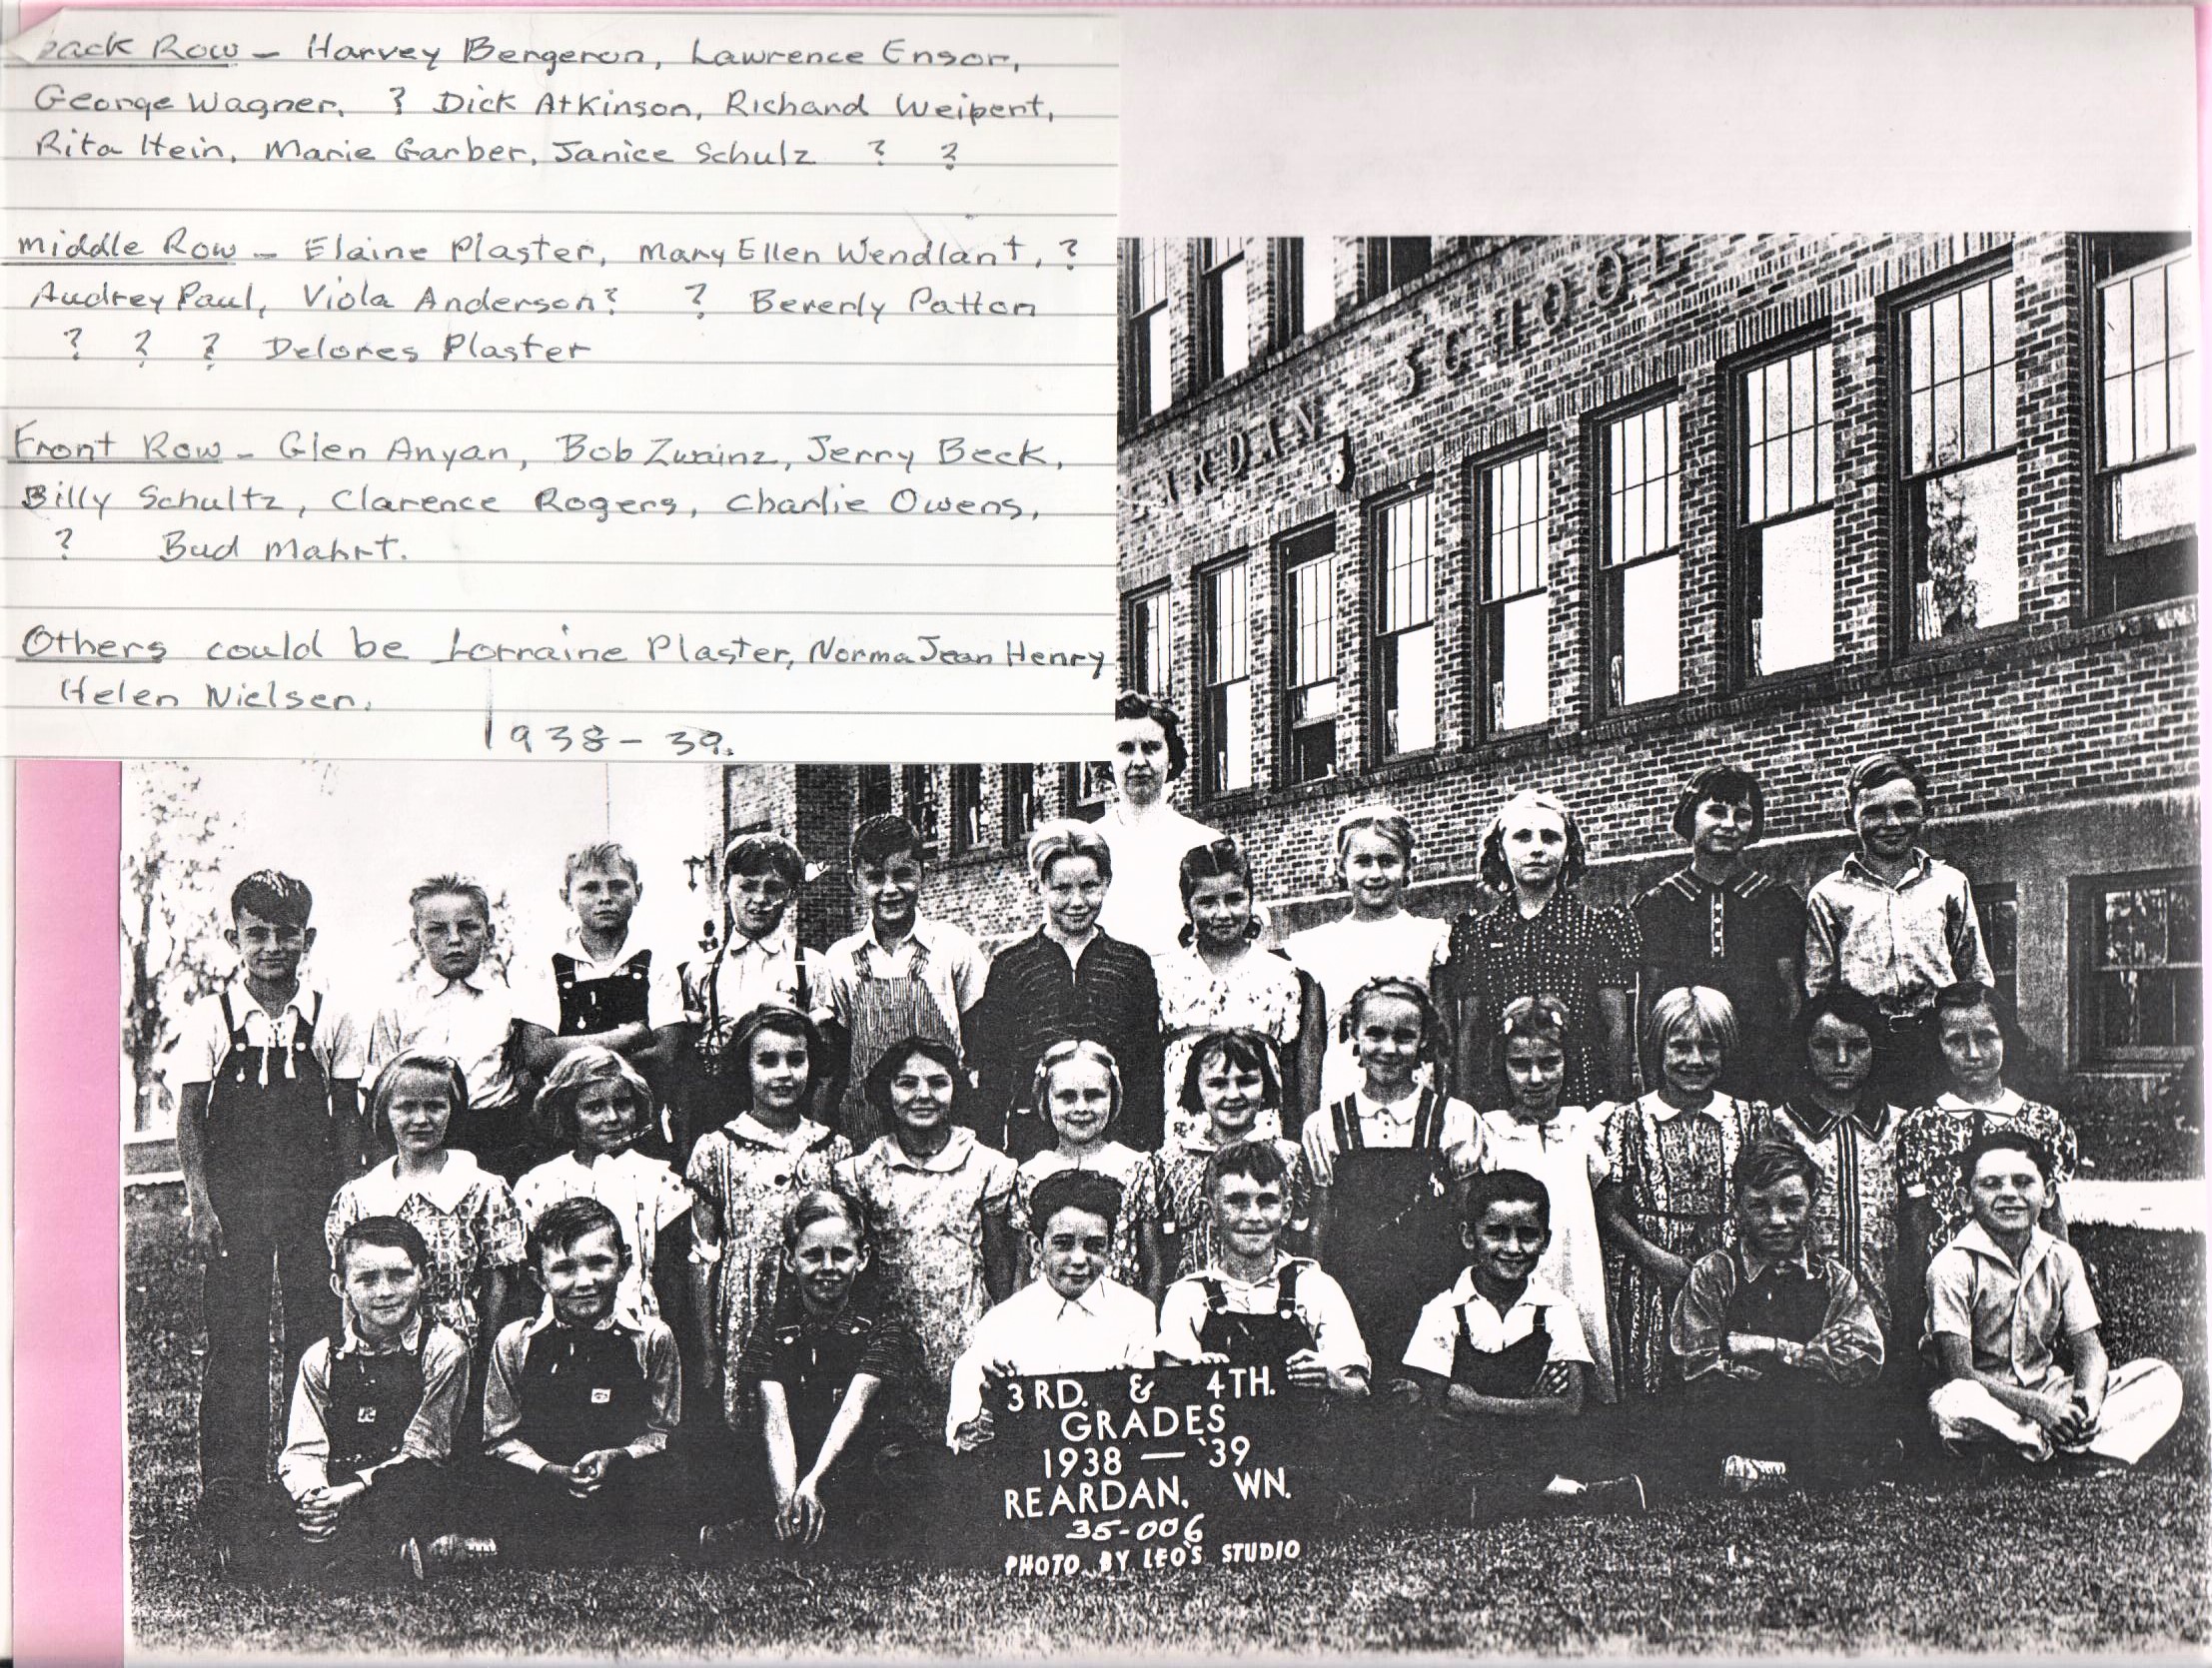 Back Row - Harvey Bergeron, Lawrence Ensor,
George Wagner, ? Dick Atkinson, Richard Weipert,
Rita Hein, Marie Garber, Janice Schulz ? ?
Middle Row - Elaine Plaster, Mary Ellen Wendlant, ?
Audrey Paul, Viola Anderson? ? Beverly Patton
? ? ? Delores Plaster
Front Row - Glen Anyan, Bob Zwainz, Jerry Beck,
Billy Schultz, Clarence Rogers, Charlie Owens,
? Bud Mahrt.
Others could be Lorraine Plaster, Norma Jean Henry
Helen Nielsen.
1938-39.
SCHOOL
3RD. & 4TH.
GRADES
1938 — '39
REARDAN, WN.
35-006
PHOTO BY LEO'S STUDIO